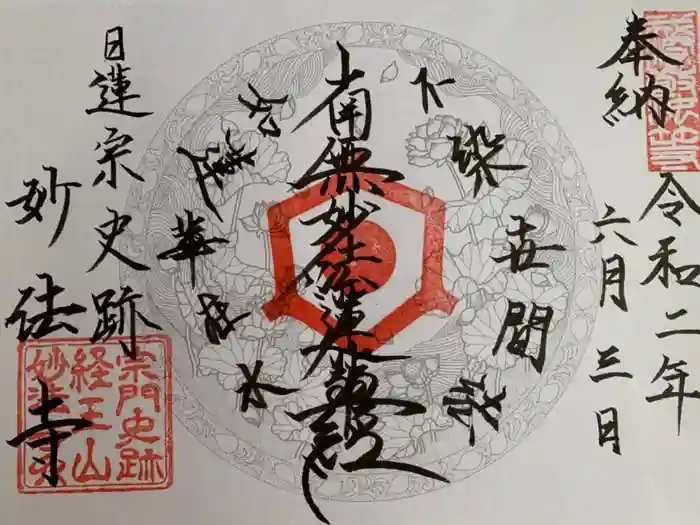 奉納
令和二年
六月三日
不染世間法
南無妙法蓮華經
如蓮華在水
日蓮宗史跡
妙法寺
宗門史跡
経王山
妙法